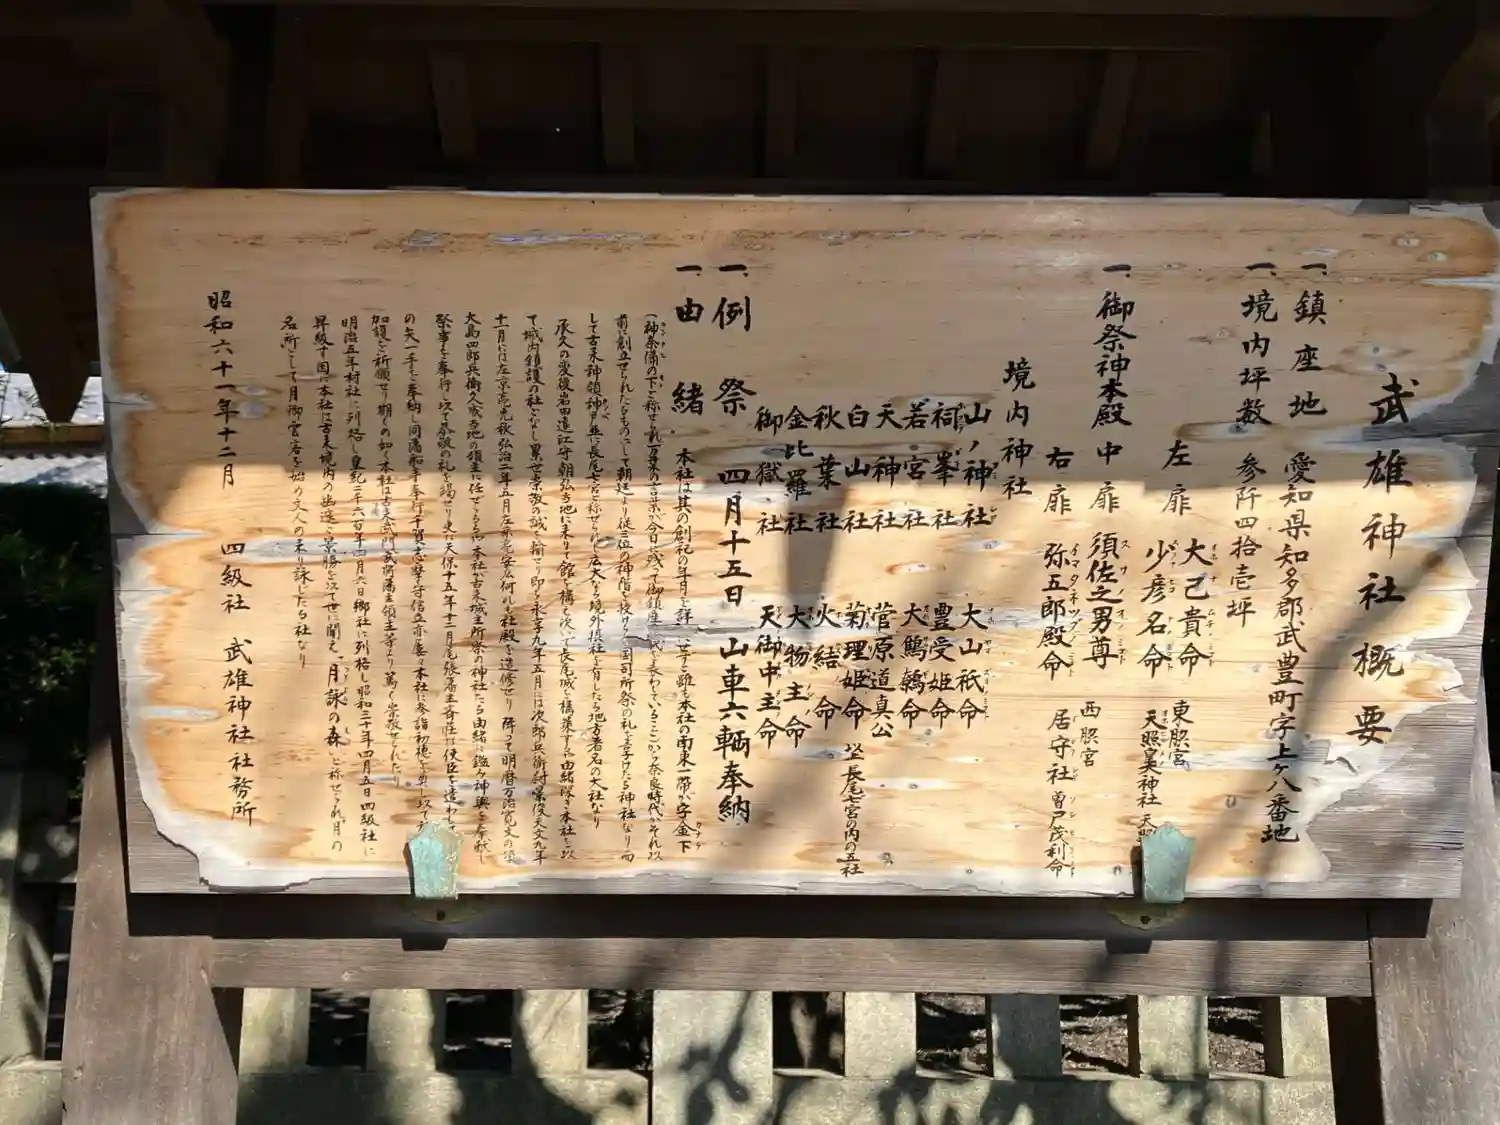 武雄神社概要
一、鎮座地 愛知県知多郡武豊町字上ヶ八番地
一、境内坪数 参阡四拾壱坪
一、御祭神本殿中扉 須佐之男尊
左扉 大己貴命
少彦名命
東照宮
天照皇大神社
右扉 弥五郎殿命
西照宮
居守社 曽戸茂利命
境内神社
山ノ神社 大山祇命
祠峯社 豊受姫命
若宮社 大鷦鷯命
天神社 菅原道真公
白山社 菊理姫命
秋葉社 火結命
金比羅社 大物主命
御嶽社 天御中主命
以上長尾七宮の内の五社
一、例祭 四月十五日 山車六輌奉納
一、由緒 本社は其の創祀の年月を詳にせずと雖も本社の南東一帯が字金下
前に創立せられたるものにして朝廷より従三位の神階を授けられ国司所祭の礼を享けたる神社なり而
して古来神領神戸並に長尾七宮と称せられし広大なる境外摂社を有したる地方著名の大社なり
承久の変後岩田遠江守朝弘当地に来りて館を構え次いで長尾城を構築する由緒深き本社を以
て城内鎮護の社となし累世崇敬の誠を輸せり即ち永享九年五月には次郎兵衛尉
十一月には左京亮光秋弘治二年五月左京亮安広何れも社殿を造修せり 降って明暦万治寛文の頃
大島四郎兵衛久 当地の領主に任ぜらるるや本社が古来城主所祭の神社たる由緒に鑑み神輿を奉献し
祭事を奉行し以て恭敬の礼を竭せり又天保十五年十二月尾張藩主
の矢一手を奉納し同藩船手奉行千賀志摩守信立亦屡々本社に参詣初穂を奥し以て
加護を祈願せり斯くの如く本社は古来武門武将藩主領主等より篤く崇敬せられたり
明治五年村社に列格し皇紀二千六百年四月六日郷社に列格し昭和三十年四月五日四級社に
昇級す因に本社は古来境内の幽邃と景勝を以て世に聞え“月詠の森”と称せられ月の
名所として月卿雲客を始め文人の来り詠じたる社なり
昭和六十一年十二月 四級社 武雄神社社務所